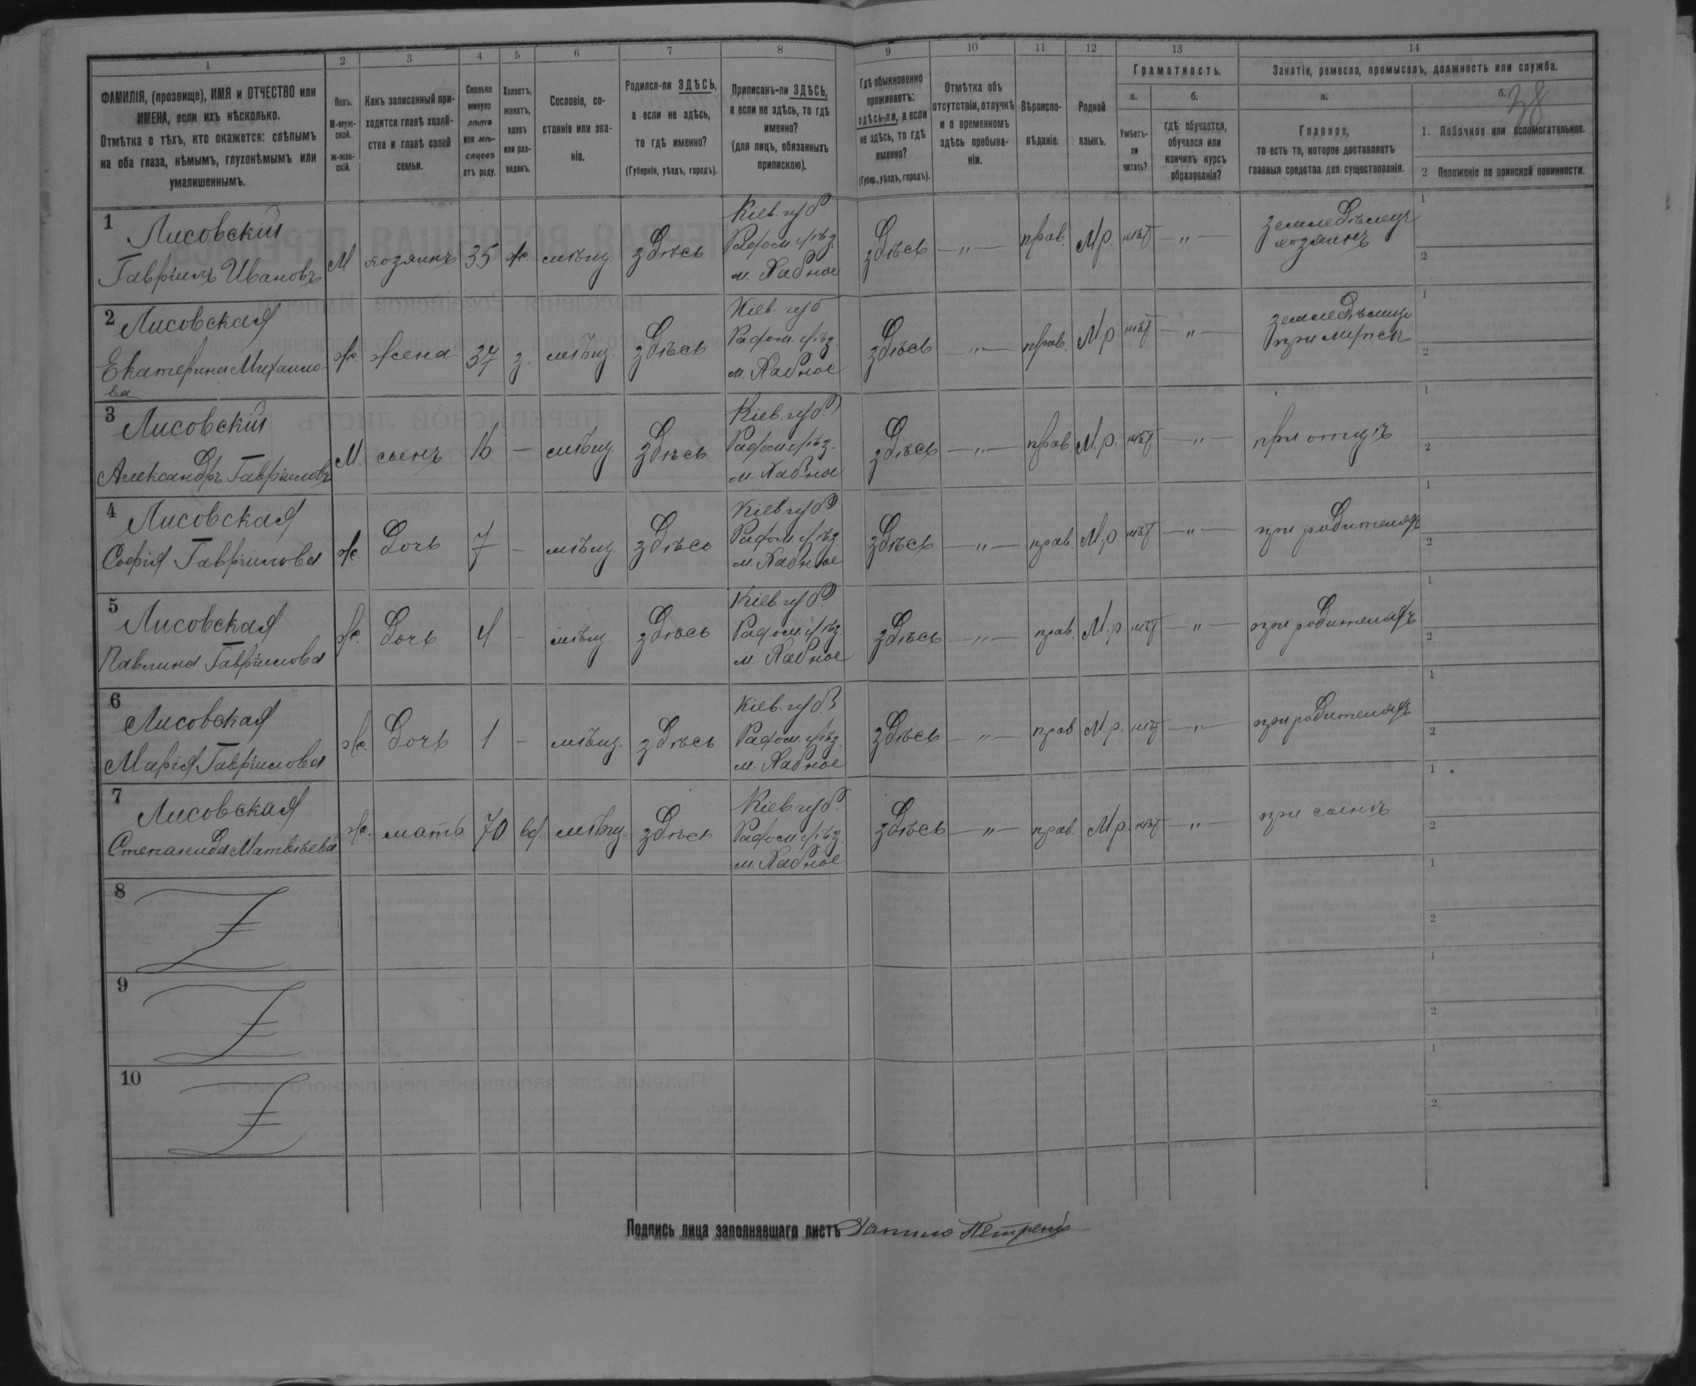 1 2 3 4 5 6 7 8 9 10 11 12 13 14
ФАМИЛІЯ, (прозвище), ИМЯ и ОТЧЕСТВО или
ИМЕНА, если ихъ нѣсколько.
Отмѣтка о тѣхъ, кто окажется: слѣпымъ
на оба глаза, нѣмымъ, глухонѣмымъ или
умалишеннымъ.
Полъ.
М-муж-
ской.
Ж-жен-
скій.
Какъ записанный при-
ходится главѣ хозяй-
ства и главѣ своей
семьи.
Сколько
минуло
лѣтъ
или мѣ-
сяцевъ
отъ роду.
Холостъ,
женатъ,
вдовъ
или раз-
веденъ.
Сословіе, со-
стояніе или зва-
ніе.
Родился-ли ЗДѢСЬ,
а если не здѣсь,
то гдѣ именно?
(Губернія, уѣздъ, городъ).
Приписанъ-ли ЗДѢСЬ,
а если не здѣсь, то гдѣ
именно?
(для лицъ, обязанныхъ
припискою).
Гдѣ обыкновенно
проживаетъ:
здѣсь-ли, а если
не здѣсь, то гдѣ
именно?
(Губер., уѣздъ, городъ).
Отмѣтка объ
отсутствіи, отлучкѣ
и о временномъ
здѣсь пребыва-
ніи.
Вѣроиспо-
вѣданіе.
Родной
языкъ.
Грамотность.
а.
Умѣетъ-
ли
читать?
б.
гдѣ обучается,
обучался или
кончилъ курсъ
образованія?
Занятія, ремесло, промыселъ, должность или служба.
а.
Главное,
то есть то, которое доставляетъ
главныя средства для существованія.
б.
38
1. Побочное или вспомогательное.
2 Положеніе по воинской повинности.
1 Лисовскій
Гавріилъ Ивановъ М хозяинъ 35 ж. мѣщ. здѣсь Кіев. губ. Радом. уѣзд. м. Хабное здѣсь —„— прав. М.р. нѣт —„— земледѣлецъ хозяинъ 1 2
2 Лисовская
Екатерина Михайло-
ва ж. жена 37 з. мѣщ. здѣсь Кіев. губ. Радом. уѣзд. м. Хабное здѣсь —„— прав. М.р. нѣт —„— 1 2
3 Лисовскій
Александръ Гавріиловъ М. сынъ 16 — мѣщ. здѣсь Кіев. губ. Радом. уѣзд. м. Хабное здѣсь —„— прав. М.р. нѣт —„— при отцѣ 1 2
4 Лисовская
Софія Гавріилова ж дочь 7 — мѣщ. здѣсь Кіев. губ. Радом. уѣзд. м. Хабное здѣсь —„— прав. М.р. нѣт —„— при родителяхъ 1 2
5 Лисовская
Павлина Гавріилова ж. дочь 4 — мѣщ. здѣсь Кіев. губ. Радом. уѣзд. м. Хабное здѣсь —„— прав. М.р. нѣт —„— при родителяхъ 1 2
6 Лисовская
Марія Гавріилова ж. дочь 1 — мѣщ. здѣсь Кіев. губ. Радом. уѣзд. м. Хабное здѣсь —„— прав М.р. нѣт —„— при родителяхъ 1 2
7 Лисовская
Степанида Матвѣева ж. мать 70 вд. мѣщ. здѣсь Кіев. губ. Радом. уѣзд. м. Хабное здѣсь —„— прав. М.р. нѣт —„— при сынѣ 1 2
8 1 2
9 1 2
10 1 2
Подпись лица заполнявшаго листъ